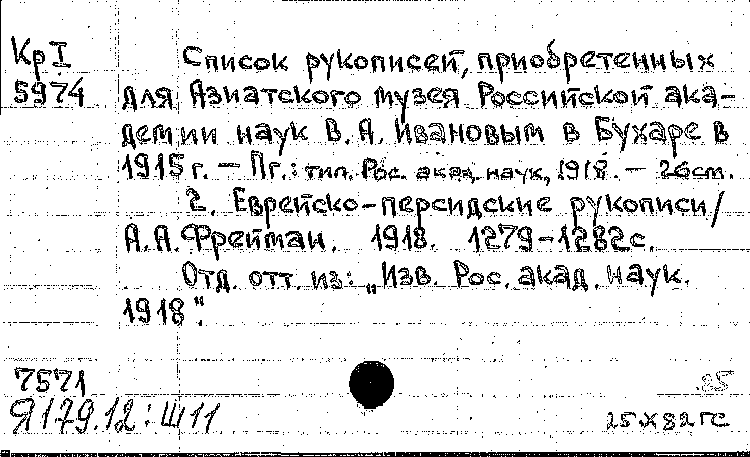 Кр I
5974
Список рукописей, приобретенных
для Азиатского музея Российской ака-
демии наук В. А. Ивановым в Бухаре в
1915 г. — Пг.: тип. Рос. акад. наук, 1918. — 26 см.
2. Еврейско-персидские рукописи/
А. А. Фрейман. 1918. 1279-1282 с.
Отд. отт. из: „Изв. Рос. акад. наук.
1918".
7571
Я179.12:Ш11
25 X 82 ГС